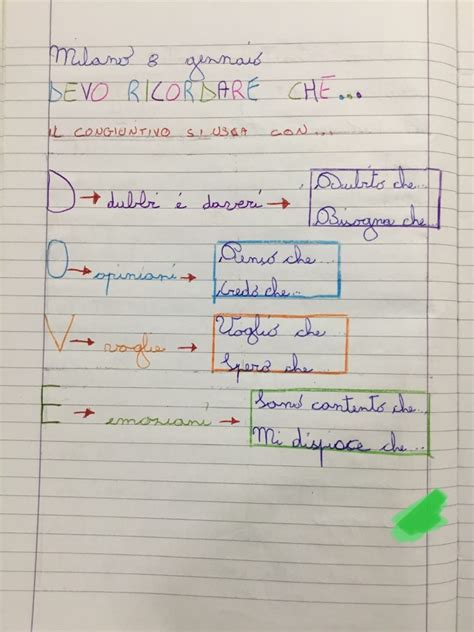 Milano 8 gennaio
DEVO RICORDARE CHE...
IL CONGIUNTIVO SI USA CON...
D → dubbi e doveri → Dubito che...
Bisogna che...
O → opinioni → Penso che...
Credo che...
V → voglie → Voglio che...
Spero che...
E → emozioni → Sono contento che...
Mi dispiace che...